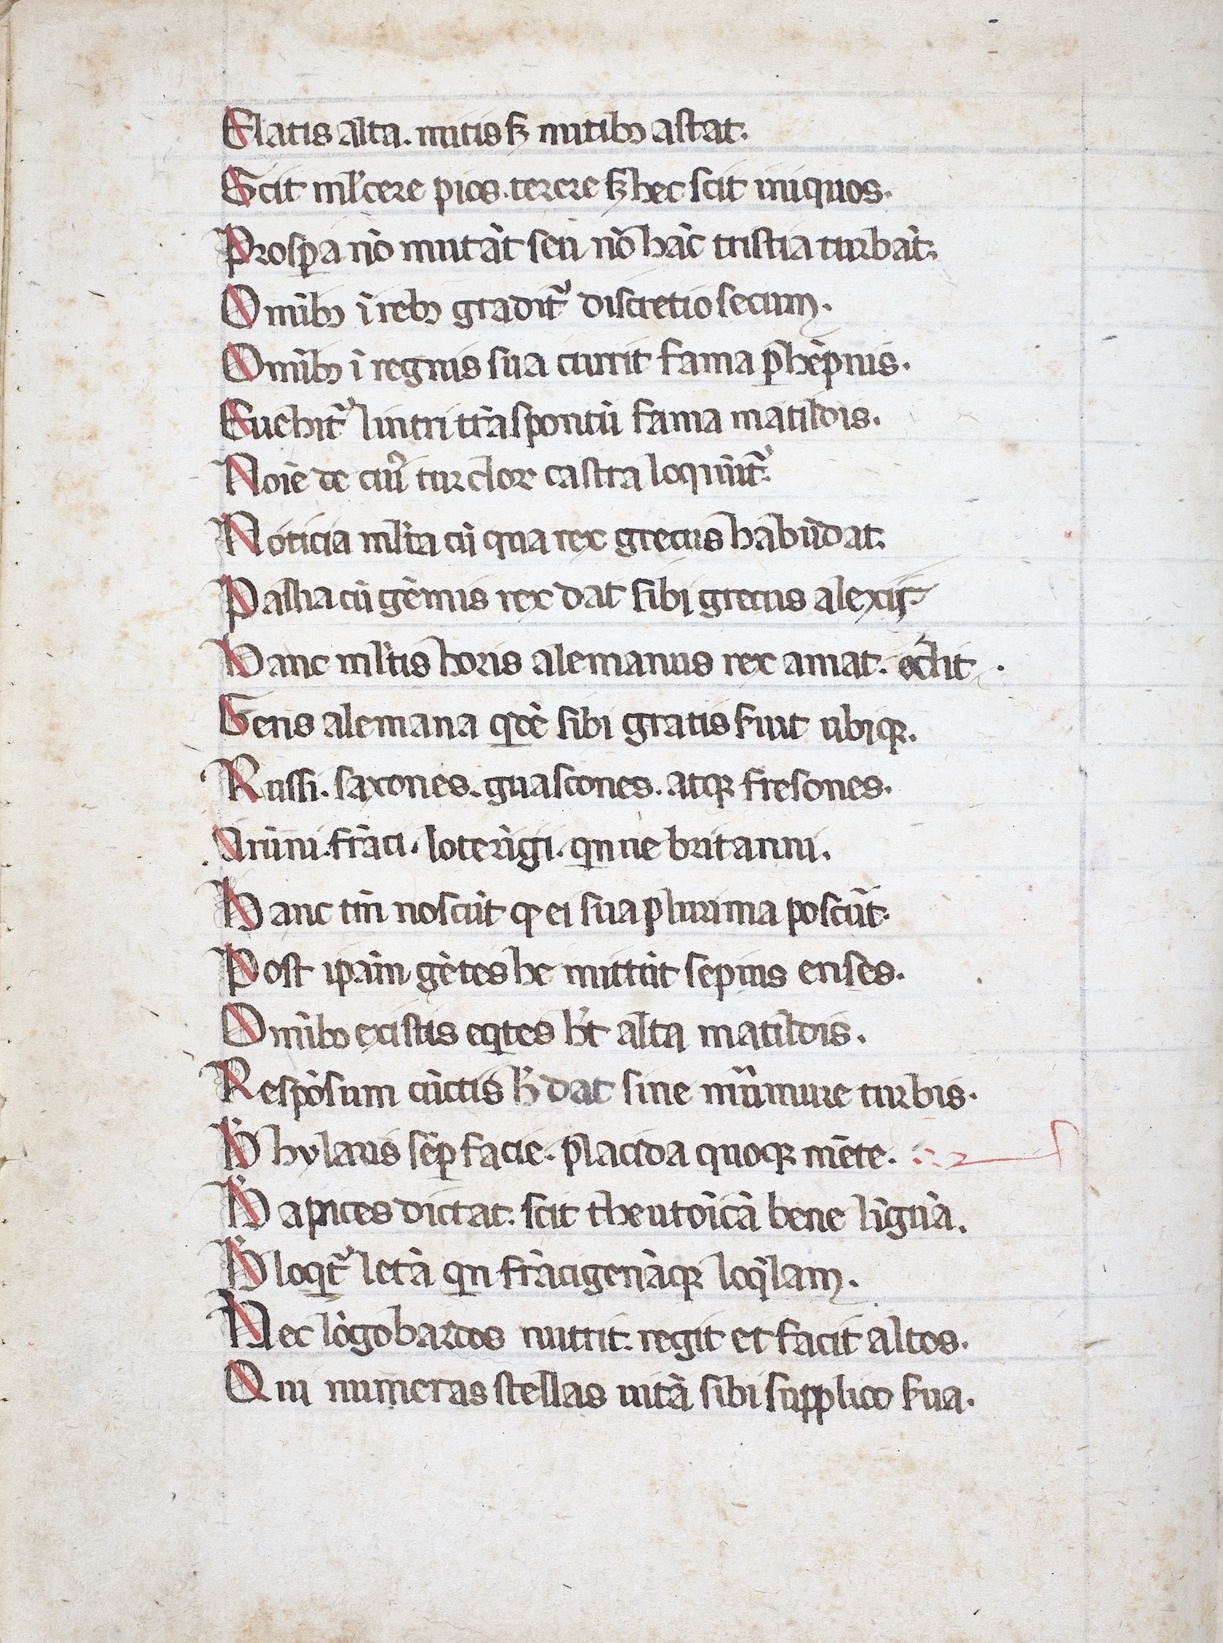 Elatis alta. mitis sꝫ mitibꝰ astat.
Scit ml̓cere pios. terere sꝫ hec scit iniquos.
Prosꝑa nō mutāt seu nō hāc tristia turbāt.
Om̄ibꝫ ī rebꝫ gradit᷑ discretio secum.
Om̄ibꝫ ī regnis sua currit fama ꝑhēpnis.
Euehit᷑ lintri trāspontū fama matildis.
Noīe de cuiꝰ tur clore castra loquūt᷑.
Noticia ml̓ta cū qua rex grecus habūdat.
Pallia cū gēmis rex dat sibi grecus alexis.
Hanc ml̓tis horis alemanus rex amat. ⁊ colit.
Gens alemana qͥdē sibi gratis ẜuit ubiqꝫ.
Russi. saxones. guascones. atqꝫ fresones.
Aruīni. frāci. loterīgi. qn ne britanni.
Hanc tm̄ noscūt qꝫ ei sua plurima poscūt.
Post ipām gētes he mittūt sepius enses.
Om̄ibꝫ existis eqͥtes hꝫ alta matildis.
Respōsum cūctis h̓ dat sine murmure turbis.
H̓ hylaris sēꝑ facie. placida quoqꝫ mēte.
H̓ apices dictat. scit theutoīcā bene līguā.
H̓ loqͥt᷑ letā qn frācigenāqꝫ loqͤlam.
Nec lōgobardos nutrit. regit et facit altos.
Qui numeras stellas uitā sibi supplico ẜua.